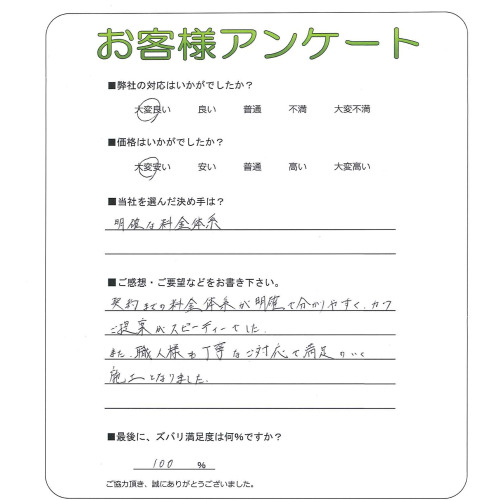 お客様アンケート
■弊社の対応はいかがでしたか？
大変良い 良い 普通 不満 大変不満
■価格はいかがでしたか？
大変安い 安い 普通 高い 大変高い
■当社を選んだ決め手は？
明確な料金体系
■ご感想・ご要望などをお書き下さい。
契約までの料金体系が明確で分かりやすく、かつ
ご提案がスピーディーでした。
また、職人様も丁寧なご対応で満足のいく
施工となりました。
■最後に、ズバリ満足度は何%ですか？
100 %
ご協力頂き、誠にありがとうございました。